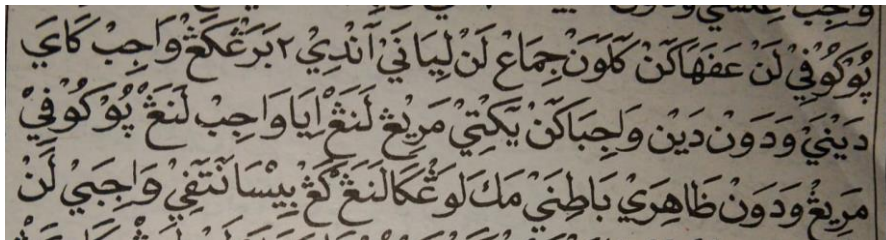 پُوْكُوْفِيْ لَنْ عَفَهَاكَنْ كَلَوَنْ جِمَاعْ لَنْ لِيَانَيْ آنْدِيْ٢ بَرَڠْكَڠْ وَاجِبْ كَايَ
دَيْنَيْ وَدَوَنْ دَيْنْ وَاجِبَاكَنْ يَكْتِيْ مَرِيْڠْ لَنَڠْ اِيَا وَاجِبْ لَنَڠْ پُوْكُوْفِيْ
مَرِيْڠْ وَدَوَنْ ظَاهِرَيْ بَاطِنَيْ مَكَ لَوْڠْكَا لَنَڠْ كَڠْ بِيْسَا نَتَفِيْ وَاجِبَيْ لَنْ